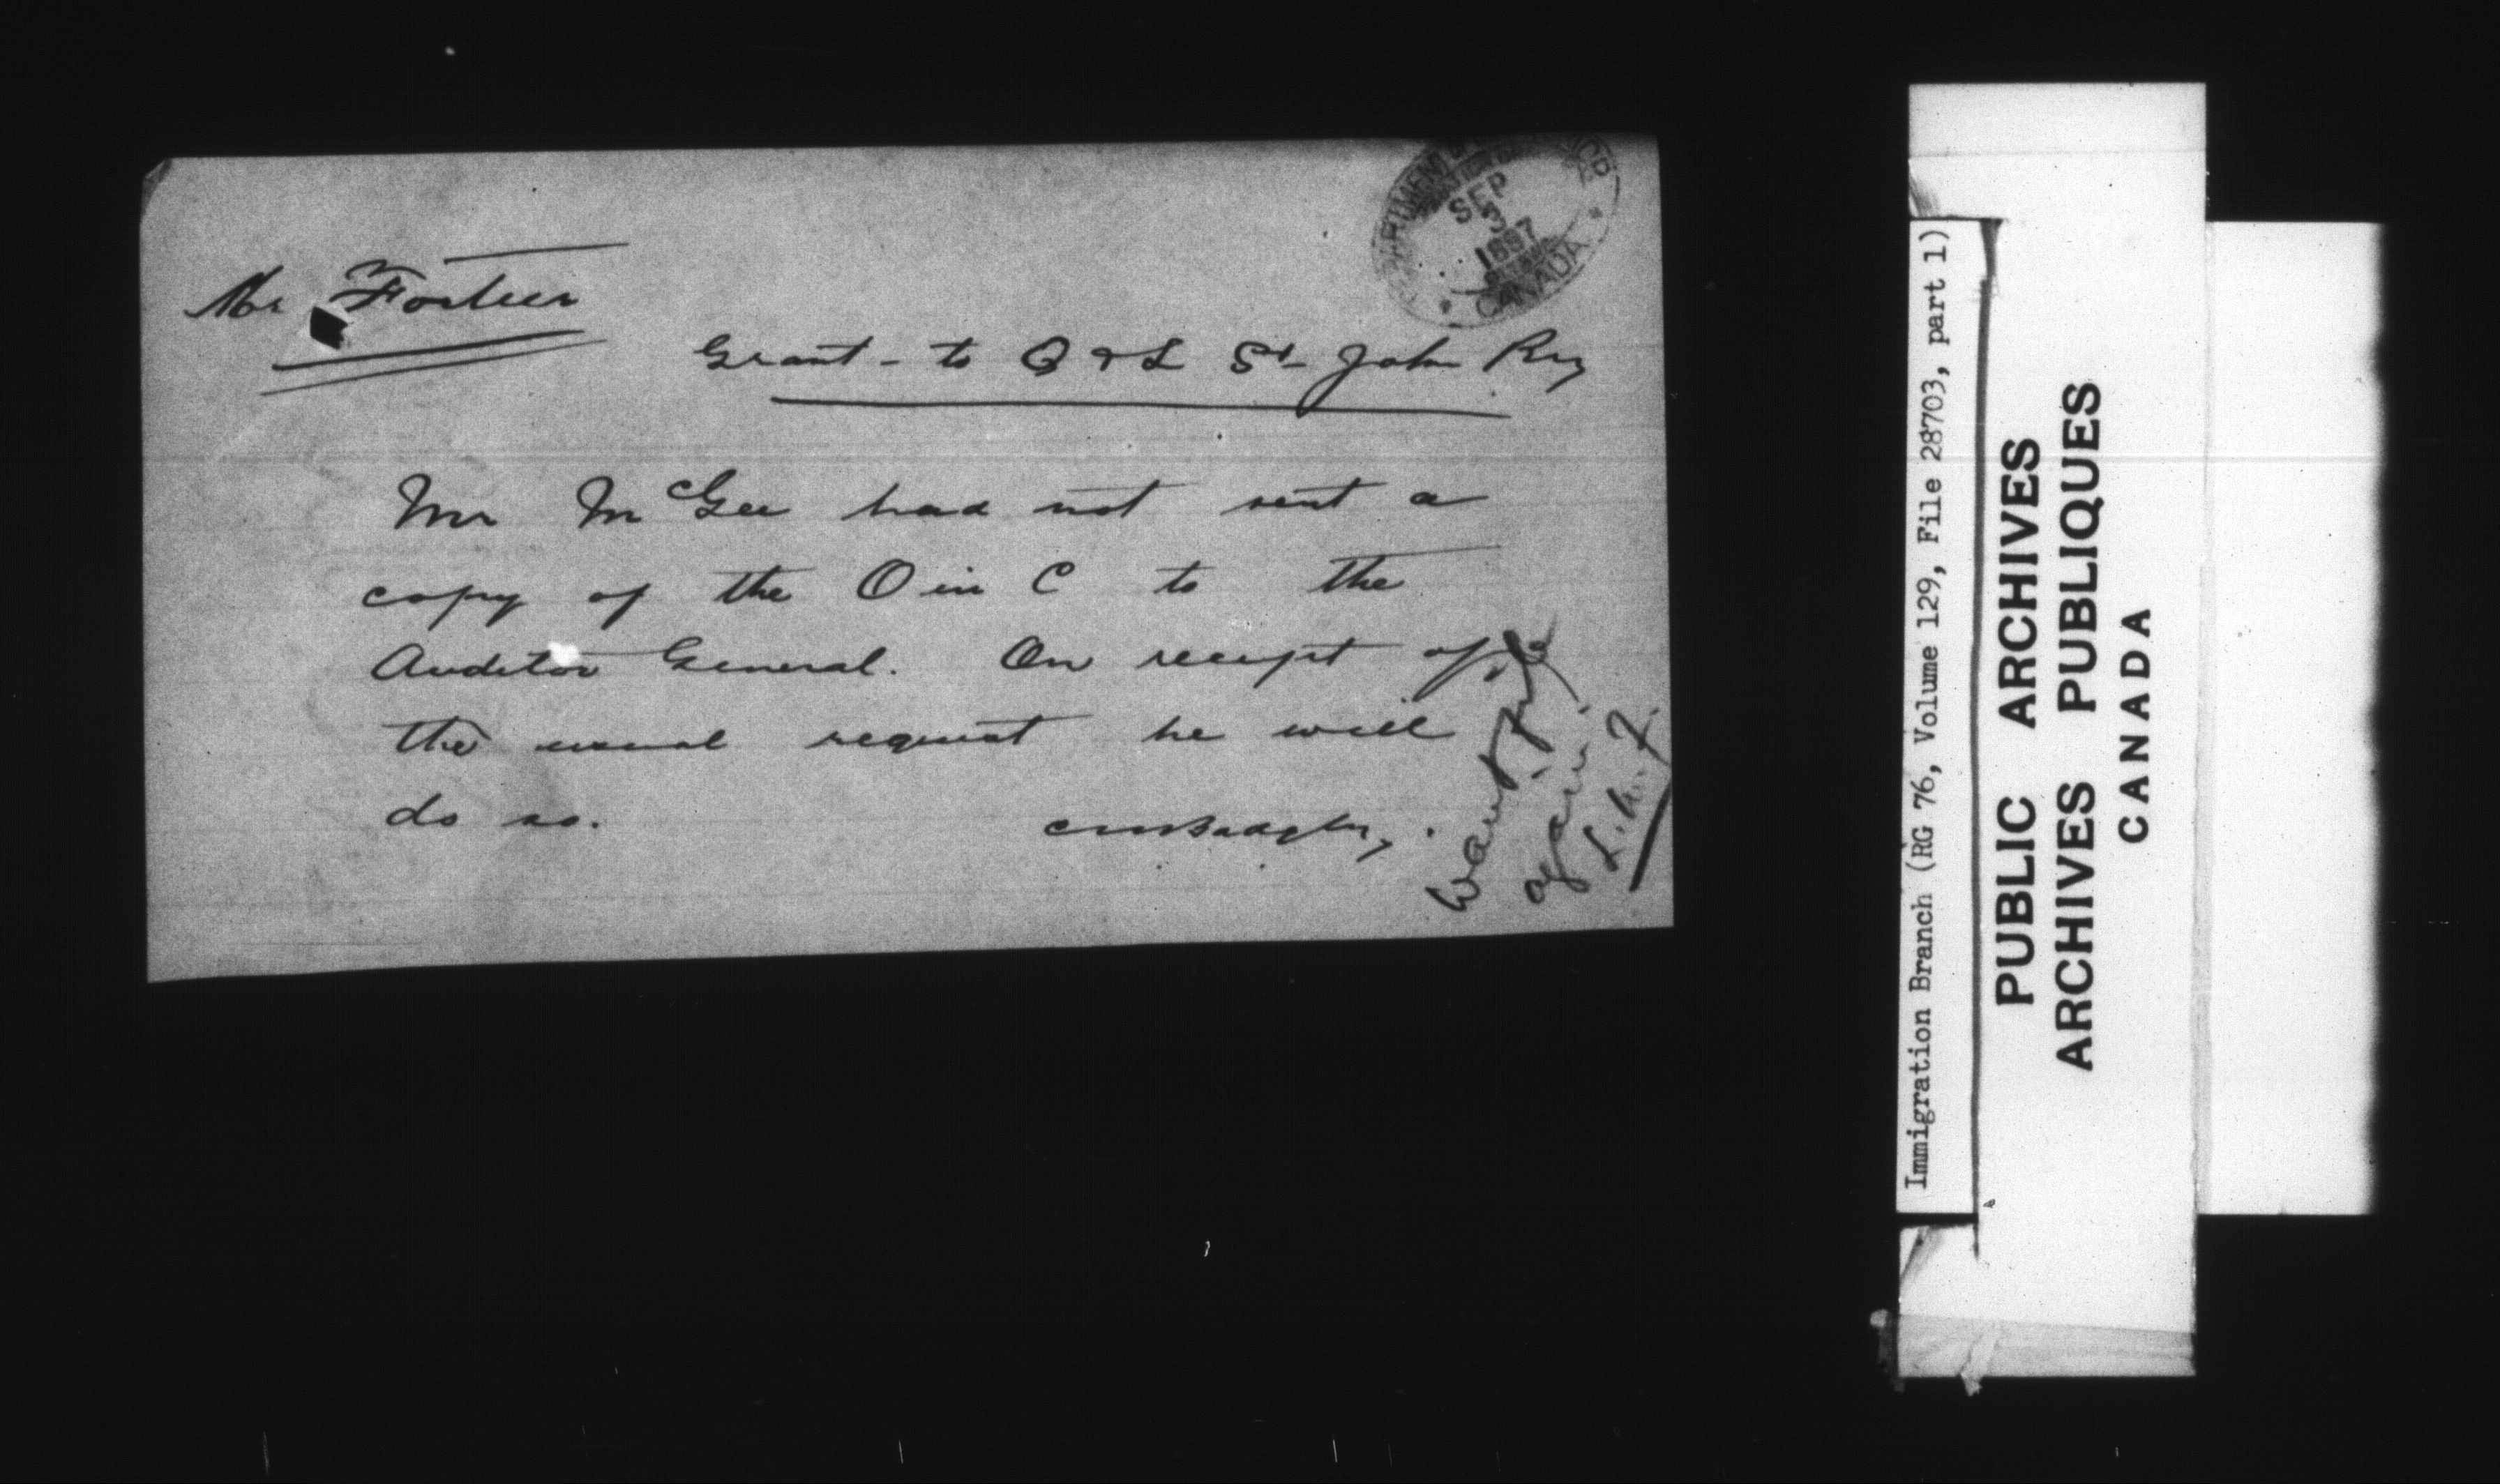 Mr Fortier
SEP
3
1897
CANADA
Grant - to Q & L St John Ry
Mr McGee had not sent a
copy of the O in C to the
Auditor General. On receipt of
the usual request he will
do so.
Want file
again.
L.M.F.
Immigration Branch (RG 76, Volume 129, File 28703, part 1)
PUBLIC ARCHIVES
ARCHIVES PUBLIQUES
CANADA